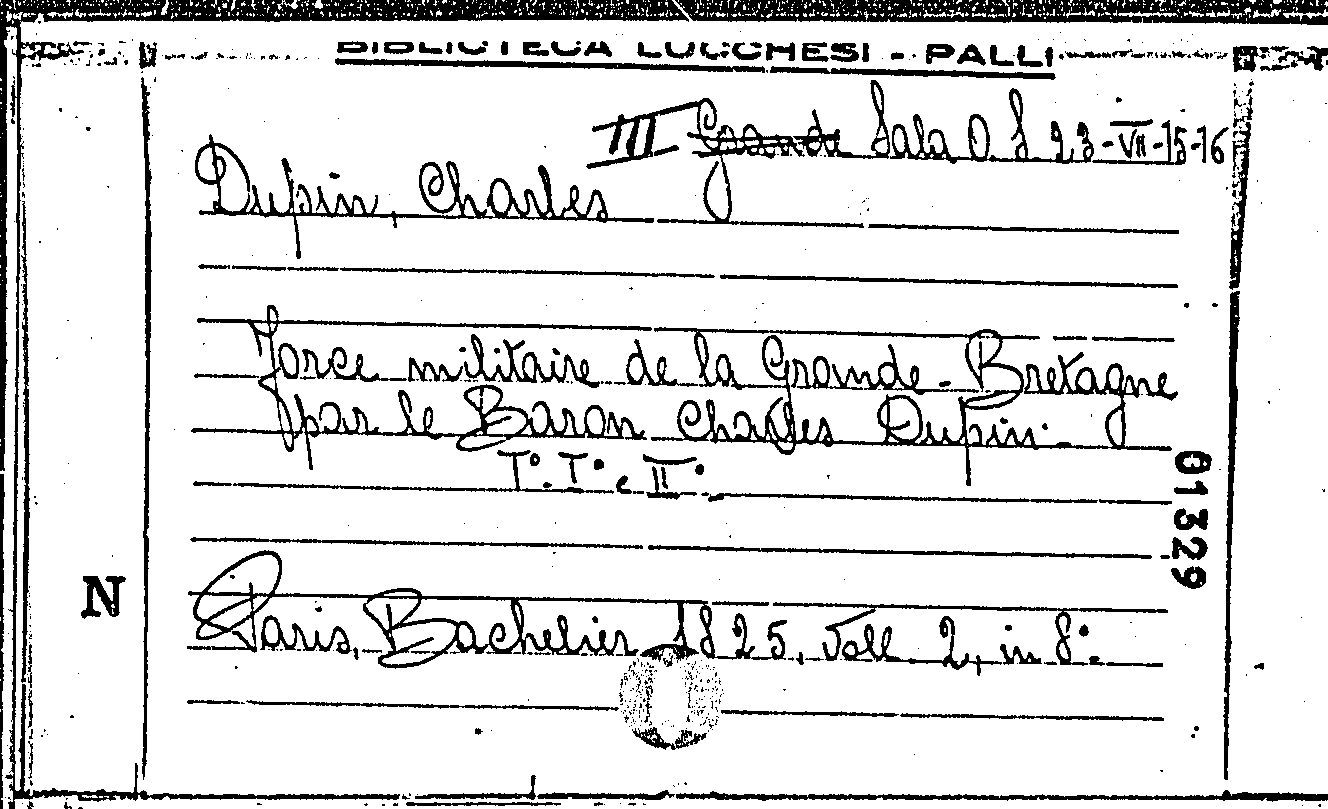 BIBLIOTECA LUCCHESI - PALLI
III Grande Sala O. 8 23-VII-15-16
Dupin, Charles
Force militaire de la Grande-Bretagne
par le Baron Charles Dupin.-
T°. I° e II°.
01329
N
Paris, Bachelier 1825, Voll. 2, in 8°.